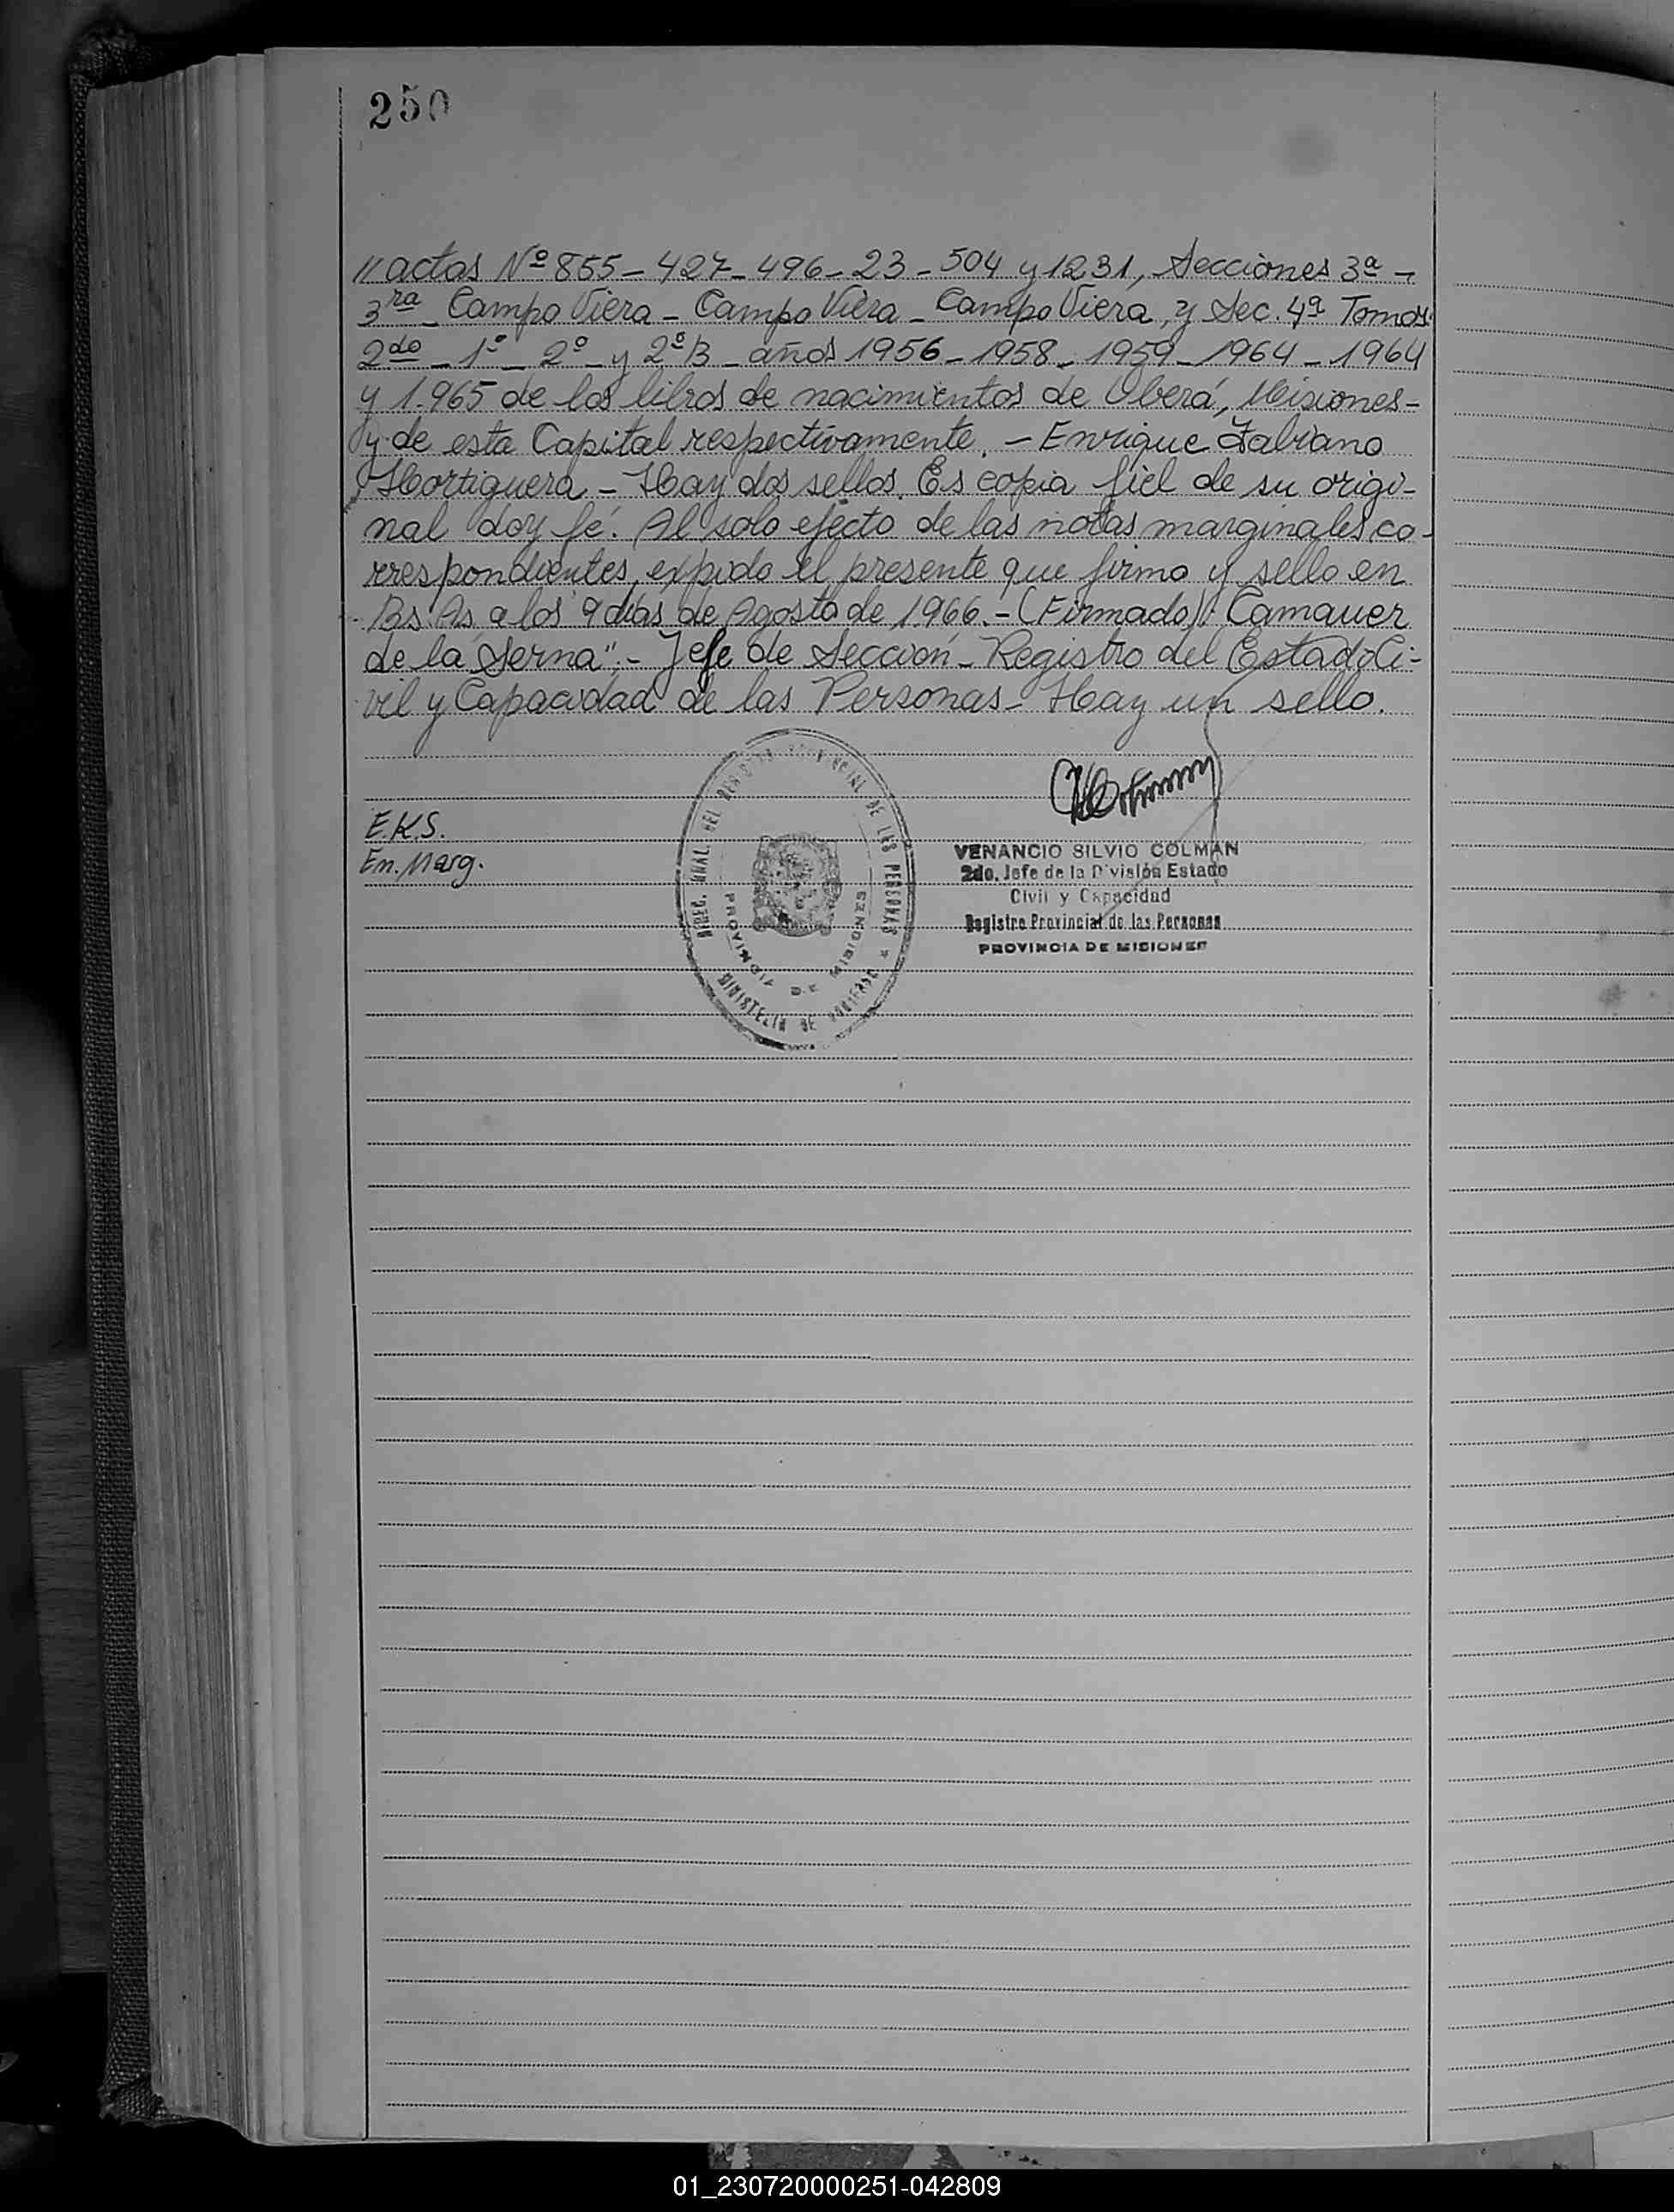 250
//actas Nº 855 - 427 - 496 - 23 - 504 y 1231, Secciones 3ª -
3ra - Campo Viera - Campo Viera - Campo Viera, y Sec. 4ª Tomos
2do - 1º - 2º - y 2º B - años 1956 - 1958 - 1959 - 1964 - 1964
y 1.965 de los libros de nacimientos de Oberá, Misiones -
y de esta Capital respectivamente. - Enrique Fabiano
Hortiguera - Hay dos sellos. Es copia fiel de su origi-
nal doy fé. Al solo efecto de las notas marginales co-
rrespondientes, expido el presente que firmo y sello en
Bs. As. a los 9 días de Agosto de 1.966. - (Firmado): Camauer
de la Serna". - Jefe de Sección - Registro del Estado Ci-
vil y Capacidad de las Personas - Hay un sello.
E.K.S.
En. Marg.
DE LAS PERSONAS *
MINISTERIO DE GOBIERNO
PROVINCIA DE MISIONES
VENANCIO SILVIO COLMAN
2do. Jefe de la División Estado
Civil y Capacidad
Registro Provincial de las Personas
PROVINCIA DE MISIONES
01_230720000251-042809